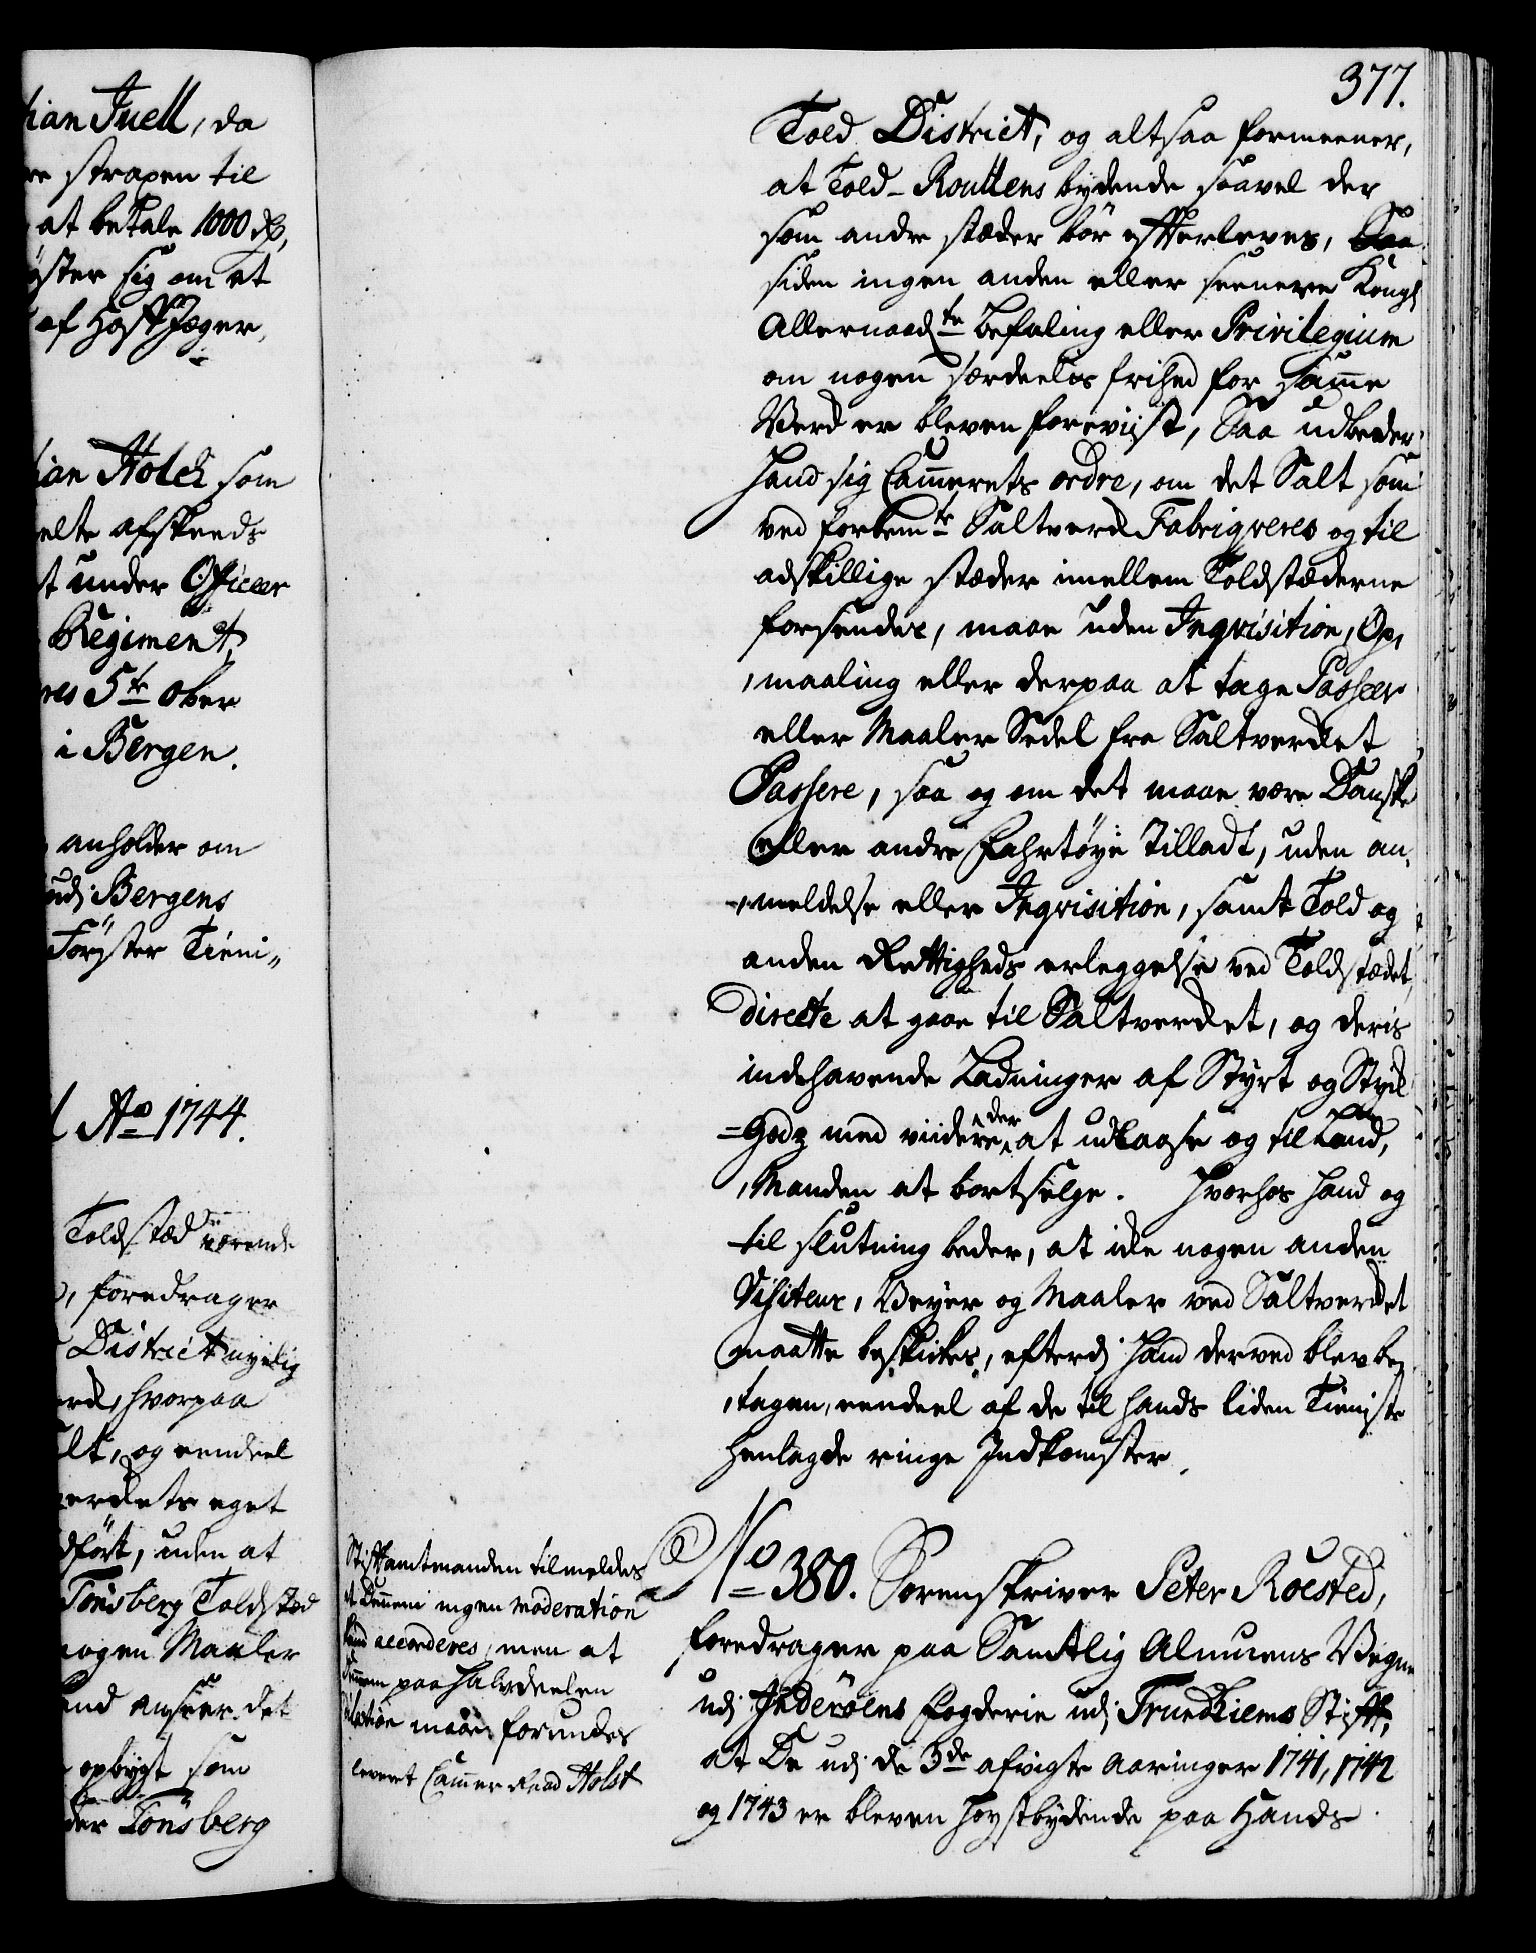 ian Juell, da
re straxen til
at betale 1000 rd,
øster sig om at
af Høst Jæger,
ian Holch som
elte afskeeds
t under Officeer
Regiment,
res 5te ober
i Bergen.
anholder om
udj Bergens
Förster Tieni„
Ao 1744.
Toldstæd værende
foredrager
District nyelig
erck, hvorpaa
alt, og eendeel
verckets eget
dført, uden at
Tönsberg Toldstæd
nogen Maaler
and anseer det
opbygt som
der Tönsberg
377.
Told District, og altsaa formeener,
at Told-Roullens bydende saavel der
som andre stæder bör efterleves, Saa
siden ingen anden eller seenere Kongl
Allernaadte befaling eller Privilegium
om nogen særdeeles frihed for samme
Verck er bleven foreviist, Saa udbeder
Hand sig Cammerets ordre, om det Salt som
ved forbemte Saltverck Fabriqveres og til
adskillige stæder imellem Toldstæderne
forsendes, maae uden Inqvisition, Op,
,maaling eller derpaa at tage Passeer
eller Maaler Sedel fra Saltvercket
Passere, saa og om det maae være Danske
eller andre Fahrtöye Tilladt, uden an,
,meldelse eller Inqvisition, samt Told og
anden Rettigheds erleggelse ved Toldstædet,
directe at gaae til Saltvercket, og deris
indehavende Ladninger af Styrt og Styk
=Godz med viidere der at udlaase og til Land,
,Manden at bortselge. Hvorhos Hand og
til slutning beder, at icke nogen anden
Visiteur, Veyer og Maaler ved Saltvercket
maatte beskickes, efterdj Hand derved blev be,
,tagen, eendeel af de til hands liden Tieniste
henlagde ringe Indkomster.
Stiftamtmanden tilmeldes
at Dennem ingen Moderation
kand accorderes, men at
dennem paa Halvdeelen
dilation maae forundes
leveret Cammer Raad Holst
No 380. Sorenskriver Peter Roested,
foredrager paa Samtlig Almuens Vegne
udj Inderöens Fogderie udj Trundhiems Stift,
at De udj de 3de afvigte Aaringer 1741, 1742
og 1743 er bleven Høystbydende paa Hands